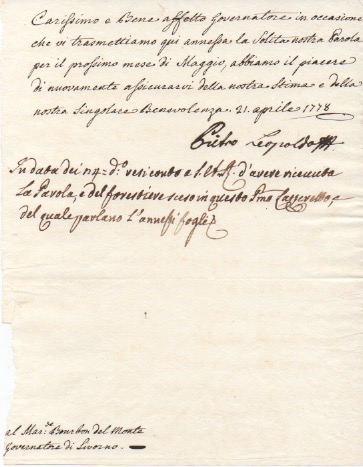 Carissimo e Bene affetto Governatore in occasione
che vi trasmettiamo qui annessa la Solita nostra Parola
per il prossimo mese di Maggio, abbiamo il piacere
di nuovamente assicurarvi della nostra Stima e della
nostra Singolare Benevolenza. 21. aprile 1778
Pietro Leopoldo
In data dei 24 d.o resi conto a S.A.R. d'avere ricevuta
la Parola, e del forestiere sceso in questo
del quale parlano l'annessi fogli
al Mar.se Bourbon del Monte
Governatore di Livorno.